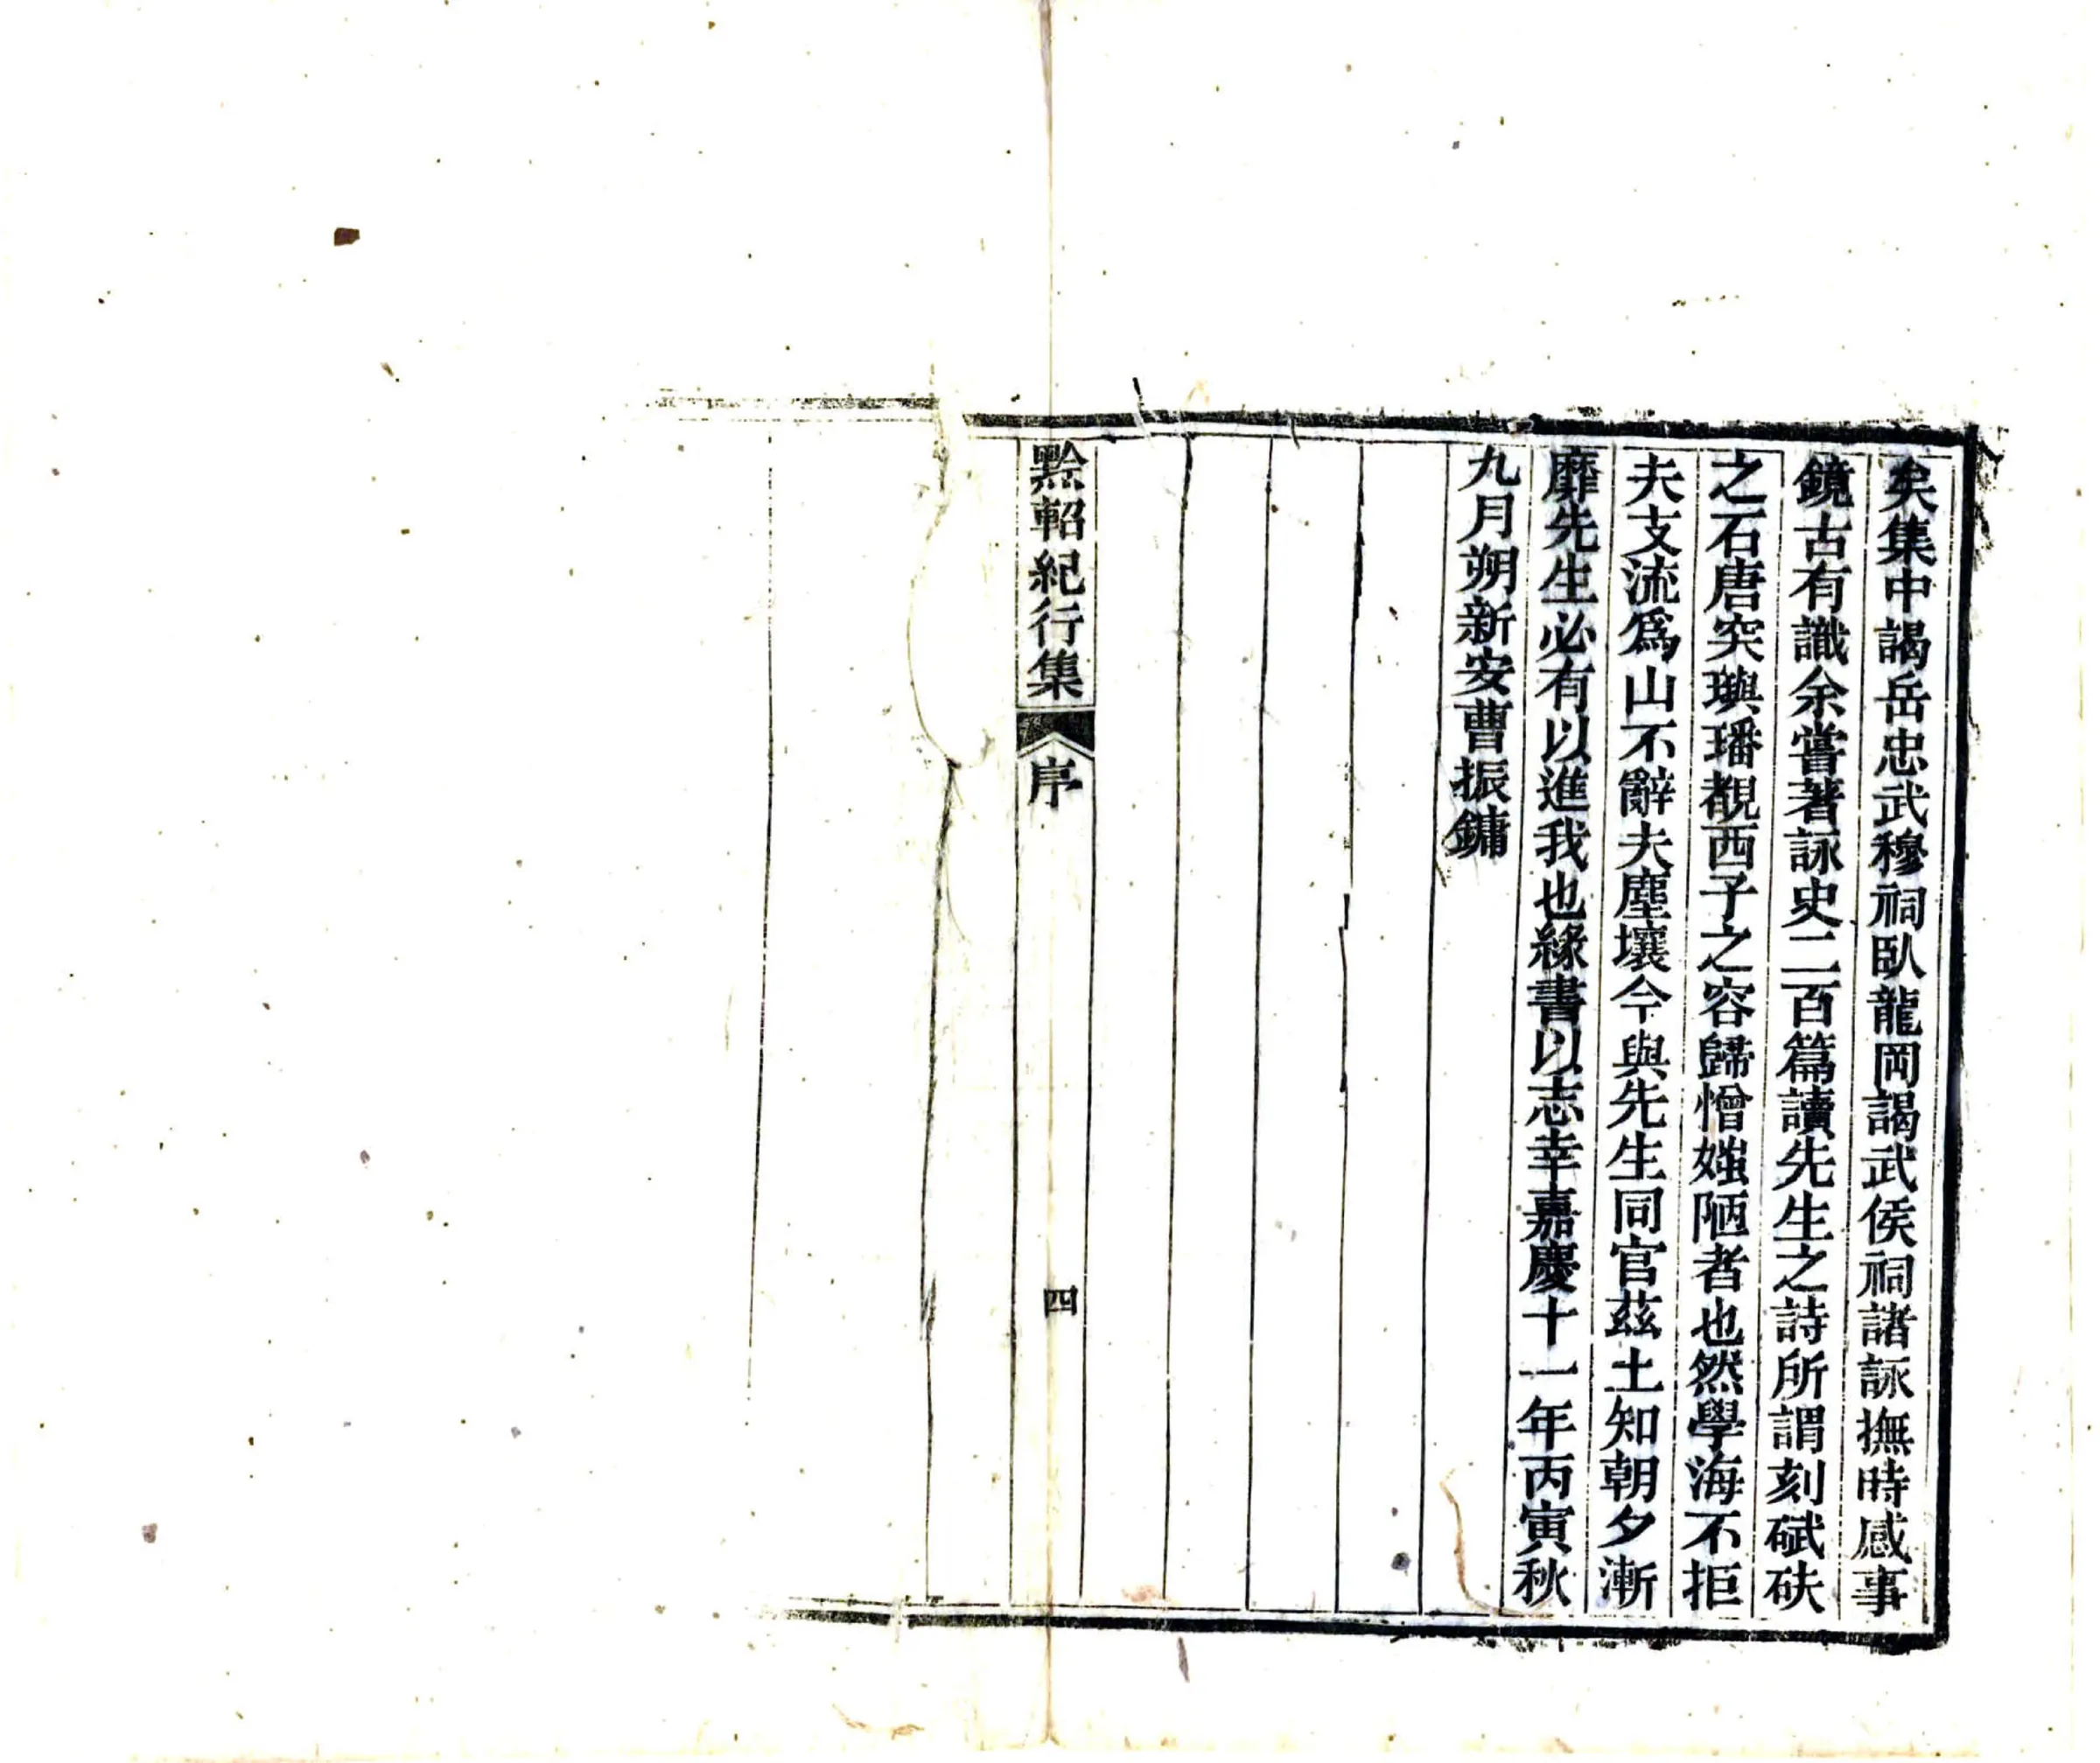 矣集中謁岳忠武穆祠臥龍岡謁武侯祠諸詠撫時感事
鏡古有識余嘗著詠史二百篇讀先生之詩所謂刻碔砆
之石唐突璵璠覩西子之容歸憎媸陋者也然學海不拒
夫支流爲山不辭夫塵壤今與先生同官茲土知朝夕漸
靡先生必有以進我也緣書以志幸嘉慶十一年丙寅秋
九月朔新安曹振鏞
黔軺紀行集
序
四